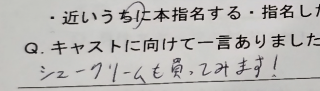 ・近いうちに本指名する・指名した
Q. キャストに向けて一言ありました
シュークリームも買ってみます!